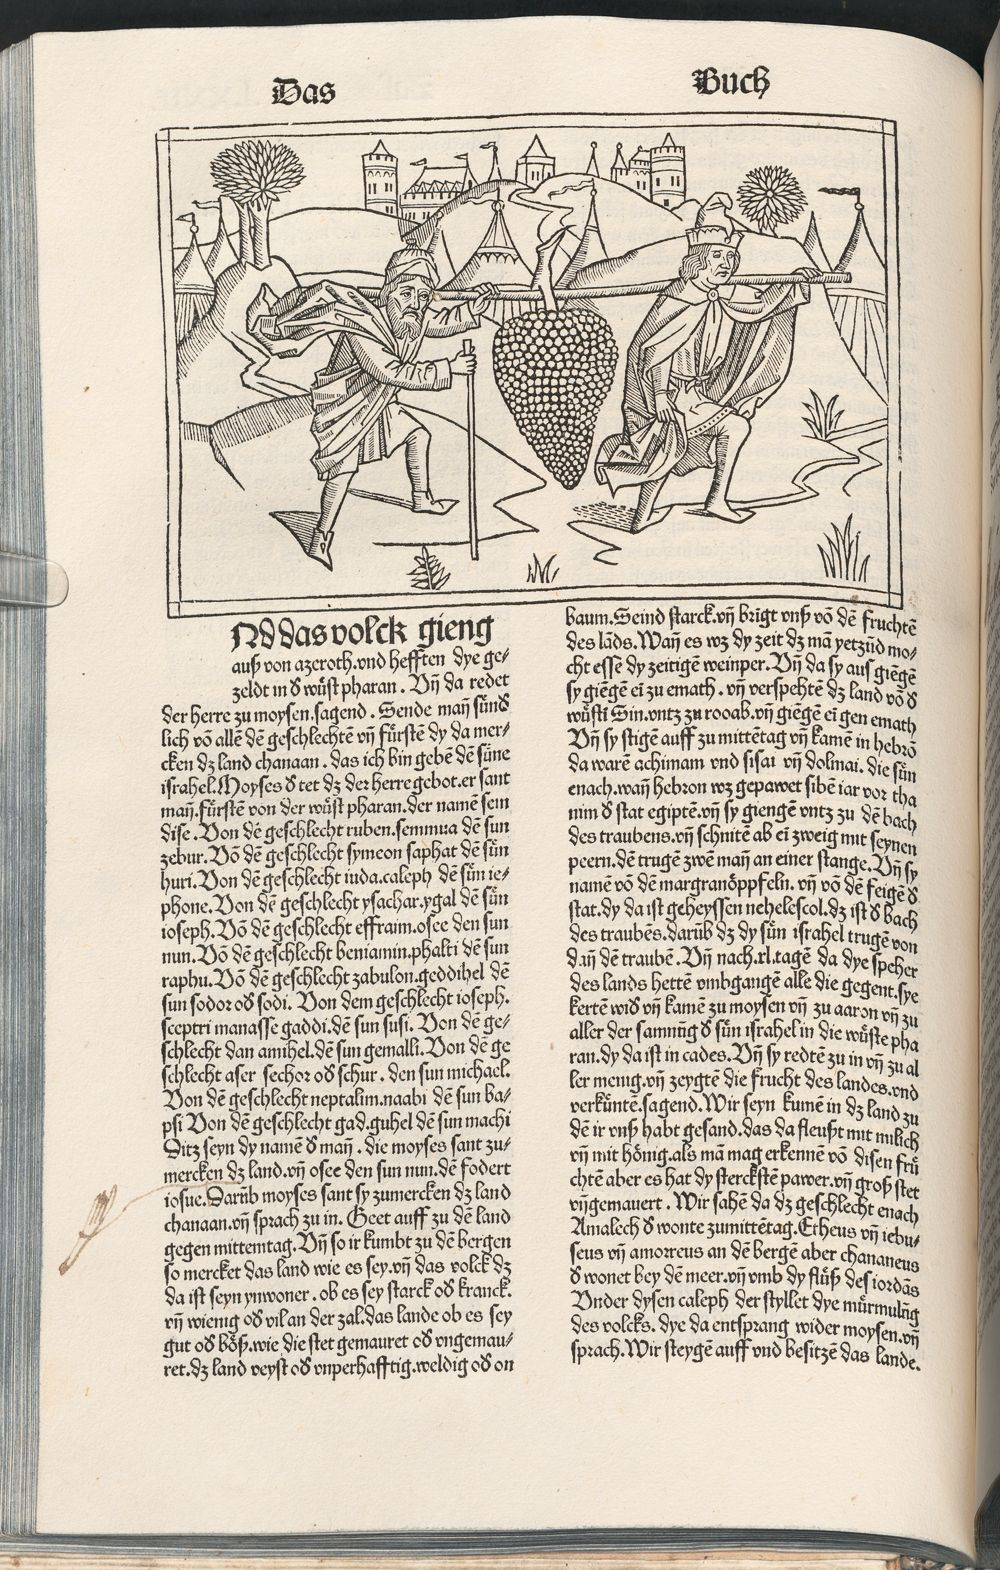 Das
Buch
Nd das volck gieng
auß von azeroth.vnd hefften dye ge⸗
zeldt in d̕ wuͤst pharan. Vn̄ da redet
der herre zu moysen.sagend. Sende man̄ suͤnd̕
lich vō allē dē geschlechtē vn̄ fuͤrstē dy da mer⸗
cken dz land chanaan.das ich bin gebē dē suͤne
israhel.Moyses d̕ tet dz der herre gebot.er sant
man̄.fuͤrstē von der wuͤst pharan.der namē sein
dise.Von dē geschlecht ruben.semmua dē sun
zebur.Vō dē geschlecht symeon saphat dē suͤn
huri.Von dē geschlecht iuda.caleph dē suͤn ie⸗
phone.Von dē geschlecht ysachar.ygal dē suͤn
ioseph.Vō dē geschlecht effraim.osee den sun
nun.Vō dē geschlecht beniamin.phalti dē sun
raphu.Vō dē geschlecht zabulon.geddihel dē
sun sodor od̕ sodi. Von dem geschlecht ioseph.
sceptri manasse gaddi.dē sun susi. Von dē ge⸗
schlecht dan amihel.dē sun gemalli.Von dē ge
schlecht aser sechor od̕ schur. den sun michael.
Von dē geschlecht neptalim.naabi dē sun ba⸗
psi Von dē geschlecht gad.guhel dē sun machi
Ditz seyn dy namē d̕ man̄. die moyses sant zu⸗
mercken dz land.vn̄ osee den sun nun.dē fodert
iosue.Daruͤb moyses sant sy zumercken dz land
chanaan.vn̄ sprach zu in. Geet auff zu dē land
gegen mittemtag.Vn̄ so ir kumbt zu dē bergen
so mercket das land wie es sey.vn̄ das volck dz
da ist seyn ynwoner. ob es sey starck od̕ kranck.
vn̄ wienig od̕ vil an der zal.das lande ob es sey
gut od̕ boͤß.wie die stet gemauret od̕ vngemau⸗
ret.dz land veyst od̕ vnperhafftig.weldig od̕ on
baum.Seind starck.vn̄ brīgt vnß vō dē fruchtē
des lāds.Wan̄ es wz dy zeit dz mā yetzūd mo⸗
cht esse dy zeitigē weinper.Vn̄ da sy aus giēgē
sy giēgē ei zu emath. vn̄ verspehtē dz land vō d̕
wuͤsti Sin.vntz zu rooab.vn̄ giēgē ei gen emath
Vn̄ sy stigē auff zu mittētag vn̄ kamē in hebrō
da warē achimam vnd sisai vn̄ dolmai. die suͤn
enach.wan̄ hebron wz gepawet sibē iar vor tha
nim d̕ stat egiptē.vn̄ sy giengē vntz zu dē bach
des traubens.vn̄ schnitē ab ei zweig mit seynen
peern.dē trugē zwē man̄ an einer stange.Vn̄ sy
namē vō dē margranoͤppfeln. vn̄ vō dē feigē d̕
stat.dy da ist geheyssen nehelescol.dz ist d̕ bach
des traubēs.daruͤb dz dy suͤn israhel trugē von
dan̄ dē traubē.Vn̄ nach.xl.tagē da dye speher
des lands hettē vmbgangē alle die gegent.sye
kertē wid̕ vn̄ kamē zu moysen vn̄ zu aaron vn̄ zu
aller der samnūg d̕ suͤn israhel in die wuͤste pha
ran.dy da ist in cades.Vn̄ sy redtē zu in vn̄ zu al
ler menig.vn̄ zeygtē die frucht des landes.vnd
verkuͤntē.sagend.Wir seyn kumē in dz land zu
dē ir vnß habt gesand.das da fleußt mit milich
vn̄ mit hoͤnig.als mā mag erkennē vō disen fruͤ
chtē aber es hat dy sterckstē pawer.vn̄ groß stet
vn̄ gemauert. Wir sahē da dz geschlecht enach
Amalech d̕ wonte zumittētag.Etheus vn̄ iebu⸗
seus vn̄ amorreus an dē bergē aber chananeus
d̕ wonet bey dē meer.vn̄ vmb dy fluͤß des iordās
Vnder dysen caleph der styllet dye muͤrmulūg
des volcks. dye da entsprang wider moysen.vn̄
sprach.Wir steygē auff vnd besitzē das lande.